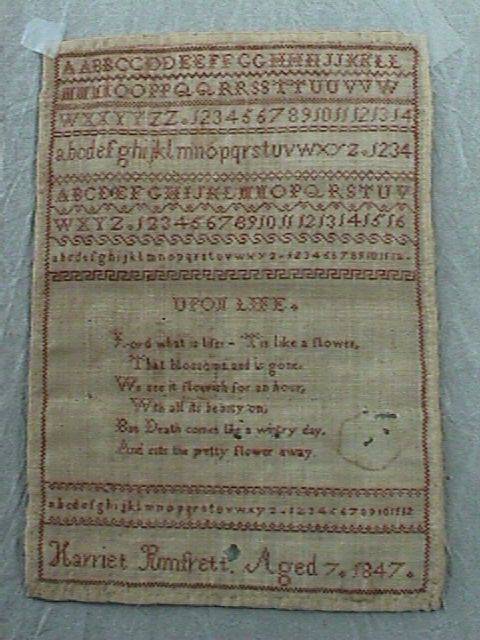 AABBCCDDEEFFGGHHIIJJKKLL
MMNNOOPPQQRRSSTTUUVVW
WXXYYZZ.1234567891011121314
abcdefghijklmnopqrstuvwxyz.1234
ABCDEFGHIJKLMNOPQRSTUV
WXYZ.12345678910111213141516
abcdefghijklmnopqrstuvwxyz.123456789101112.
UPON LIFE.
Lord what is life - Tis like a flower,
That blossoms and is gone.
We see it flourish for an hour,
With all its beauty on,
But Death comes like a wintry day,
And cuts the pretty flower away.
abcdefghijklmnopqrstuvwxyz.123456789101112
Harriet Aged 7. 1847.